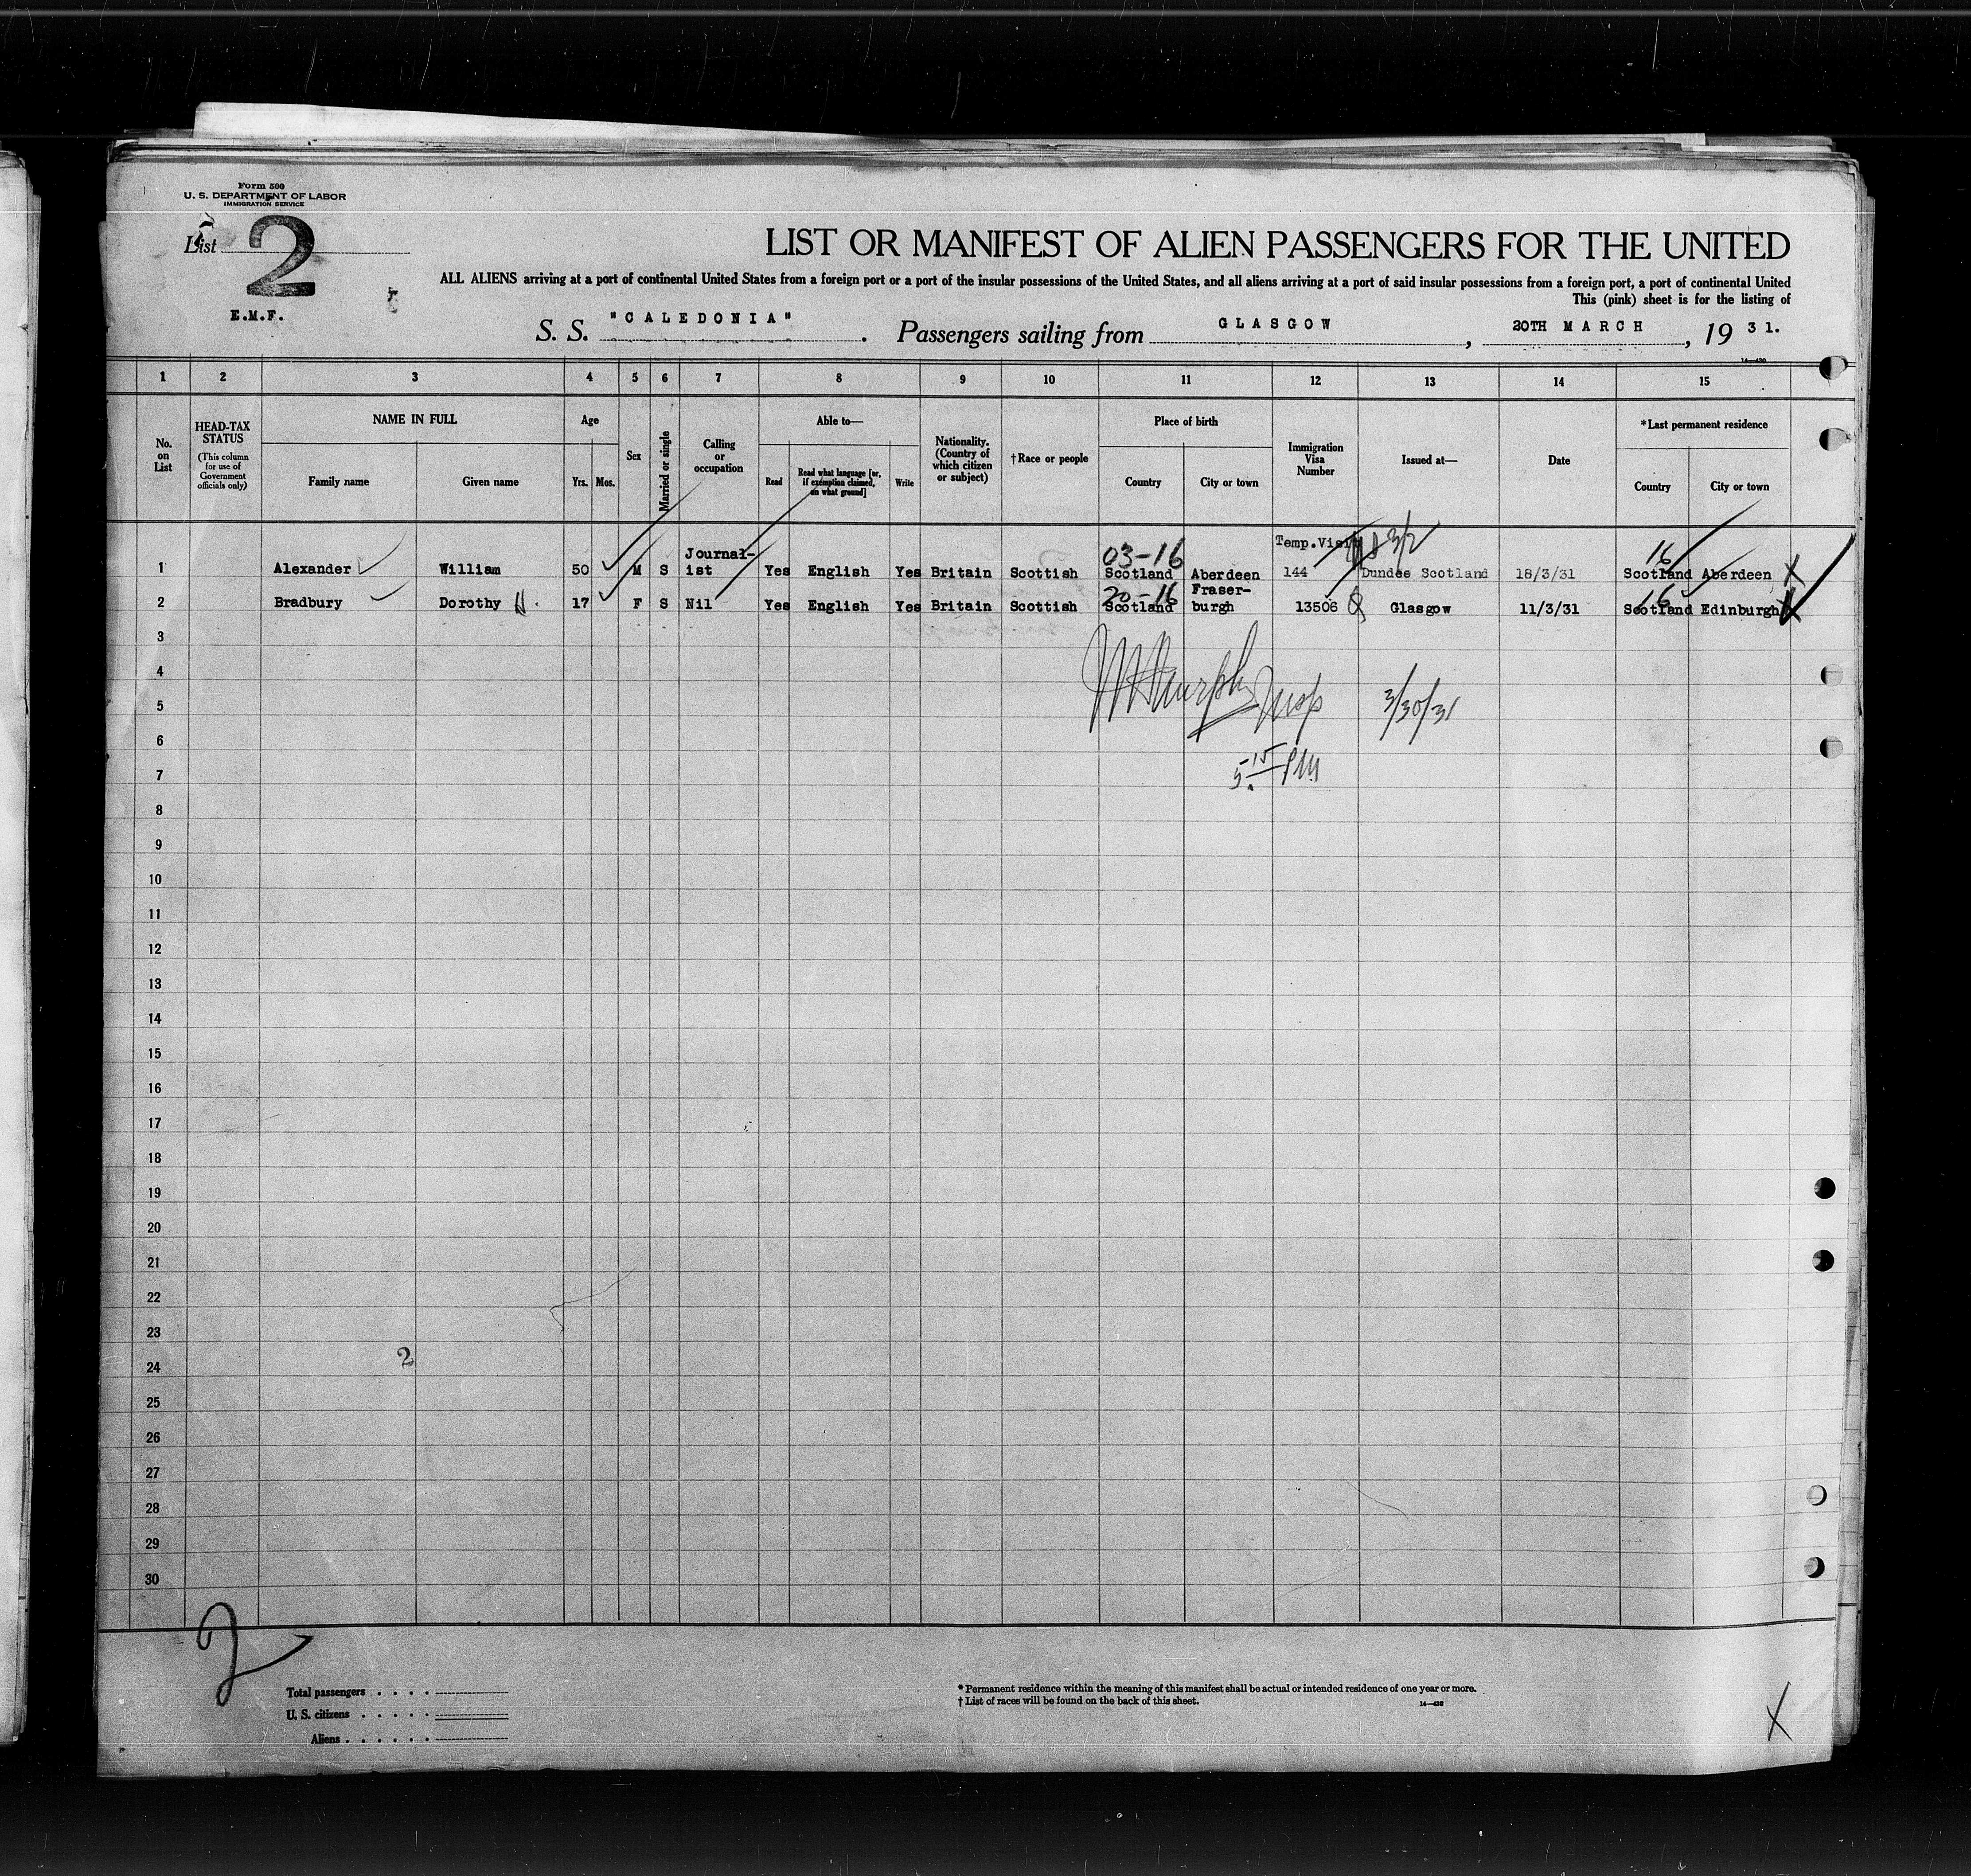 Form 500
U. S. DEPARTMENT OF LABOR
IMMIGRATION SERVICE
List 2
E.M.F.
LIST OR MANIFEST OF ALIEN PASSENGERS FOR THE UNITED
ALL ALIENS arriving at a port of continental United States from a foreign port or a port of the insular possessions of the United States, and all aliens arriving at a port of said insular possessions from a foreign port, a port of continental United
This (pink) sheet is for the listing of
S. S. "CALEDONIA". Passengers sailing from GLASGOW, 20TH MARCH, 1931.
1 2 3 4 5 6 7 8 9 10 11 12 13 14 15
No. on List
HEAD-TAX STATUS
(This column for use of Government officials only)
NAME IN FULL
Family name Given name
Age
Yrs. Mos.
Sex
Married or single
Calling or occupation
Able to—
Read
Read what language [or, if exemption claimed, on what ground]
Write
Nationality. (Country of which citizen or subject)
† Race or people
Place of birth
Country City or town
Immigration Visa Number
Issued at—
Date
*Last permanent residence
Country City or town
03-16 Temp.Visit 3/2 16
1 Alexander William 50 M S Journal-ist Yes English Yes Britain Scottish Scotland Aberdeen 144 Dundee Scotland 18/3/31 Scotland Aberdeen X
20-16 16
2 Bradbury Dorothy H. 17 F S Nil Yes English Yes Britain Scottish Scotland Fraser-burgh 13506 Glasgow 11/3/31 Scotland Edinburgh X
3
4
Murphy Insp 3/30/31
5
6
7
5.15 PM
8
9
10
11
12
13
14
15
16
17
18
19
20
21
22
23
2
24
25
26
27
28
29
30
2
Total passengers
U. S. citizens
Aliens
* Permanent residence within the meaning of this manifest shall be actual or intended residence of one year or more.
† List of races will be found on the back of this sheet.
X